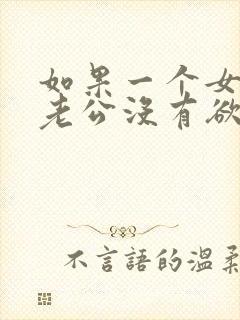 如果一个女
老公没有欲
不言語的温柔